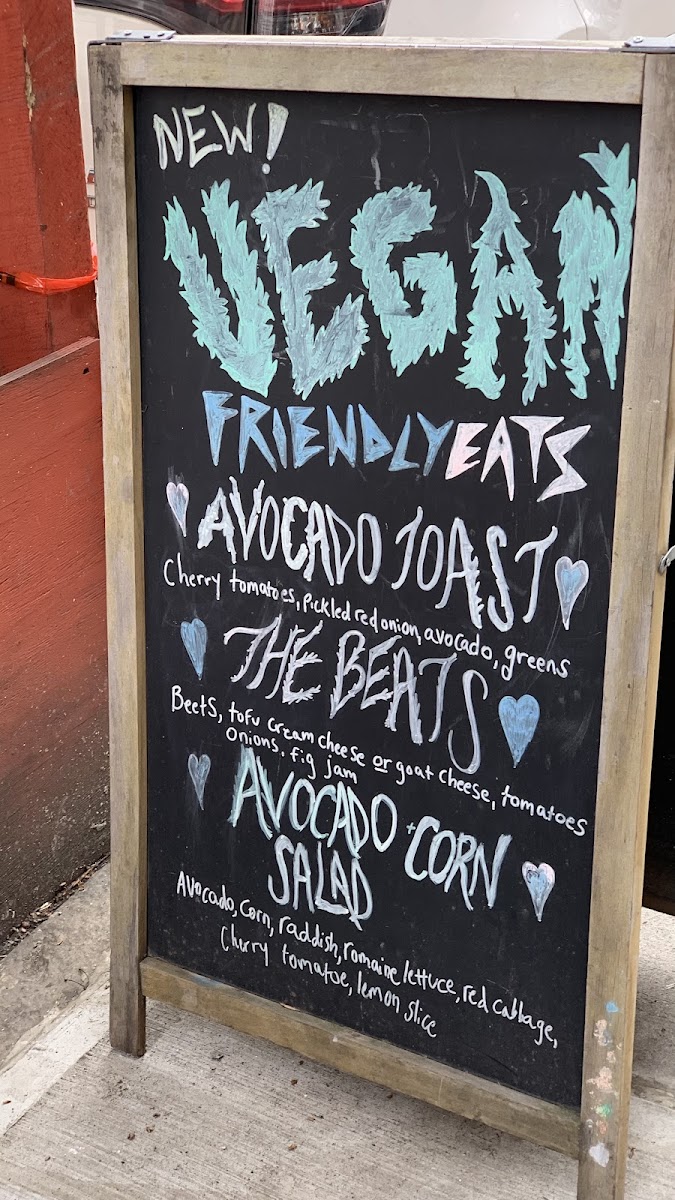 NEW!
VEGAN
FRIENDLY EATS
AVOCADO TOAST
Cherry tomatoes, Pickled red onion, avocado, greens
THE BEATS
Beets, tofu cream cheese or goat cheese, tomatoes
onions, fig jam
AVOCADO + CORN
SALAD
Avocado, corn, raddish, romaine lettuce, red cabbage,
Cherry tomatoe, lemon slice